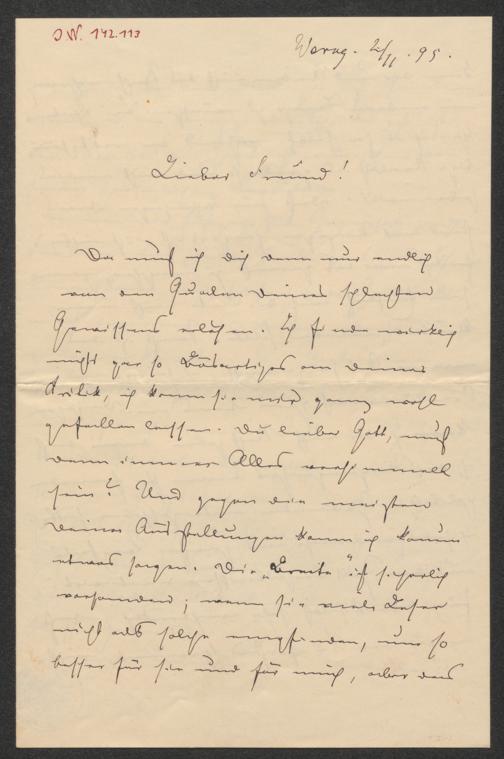 I.N. 142.113
2/11. 95.
Lieber Freund!
Da muß ich dich denn nur endlich
von den Qualen Deines schlechten
Gewissens erlösen. Ich finde wirklich
nicht gar so Bösartiges an Deiner
Kritik, ich kann sie mir ganz wohl
gefallen lassen. Du lieber Gott, muß
denn immer Alles verhimmelt
sein? Und gegen die meisten
Deiner Ausstellungen kann ich kaum
etwas sagen. Die „Breite“ ist sicherlich
vorhanden; wenn sie viele Leser
nicht als solche empfinden, um so
besser für sie und für mich, aber das